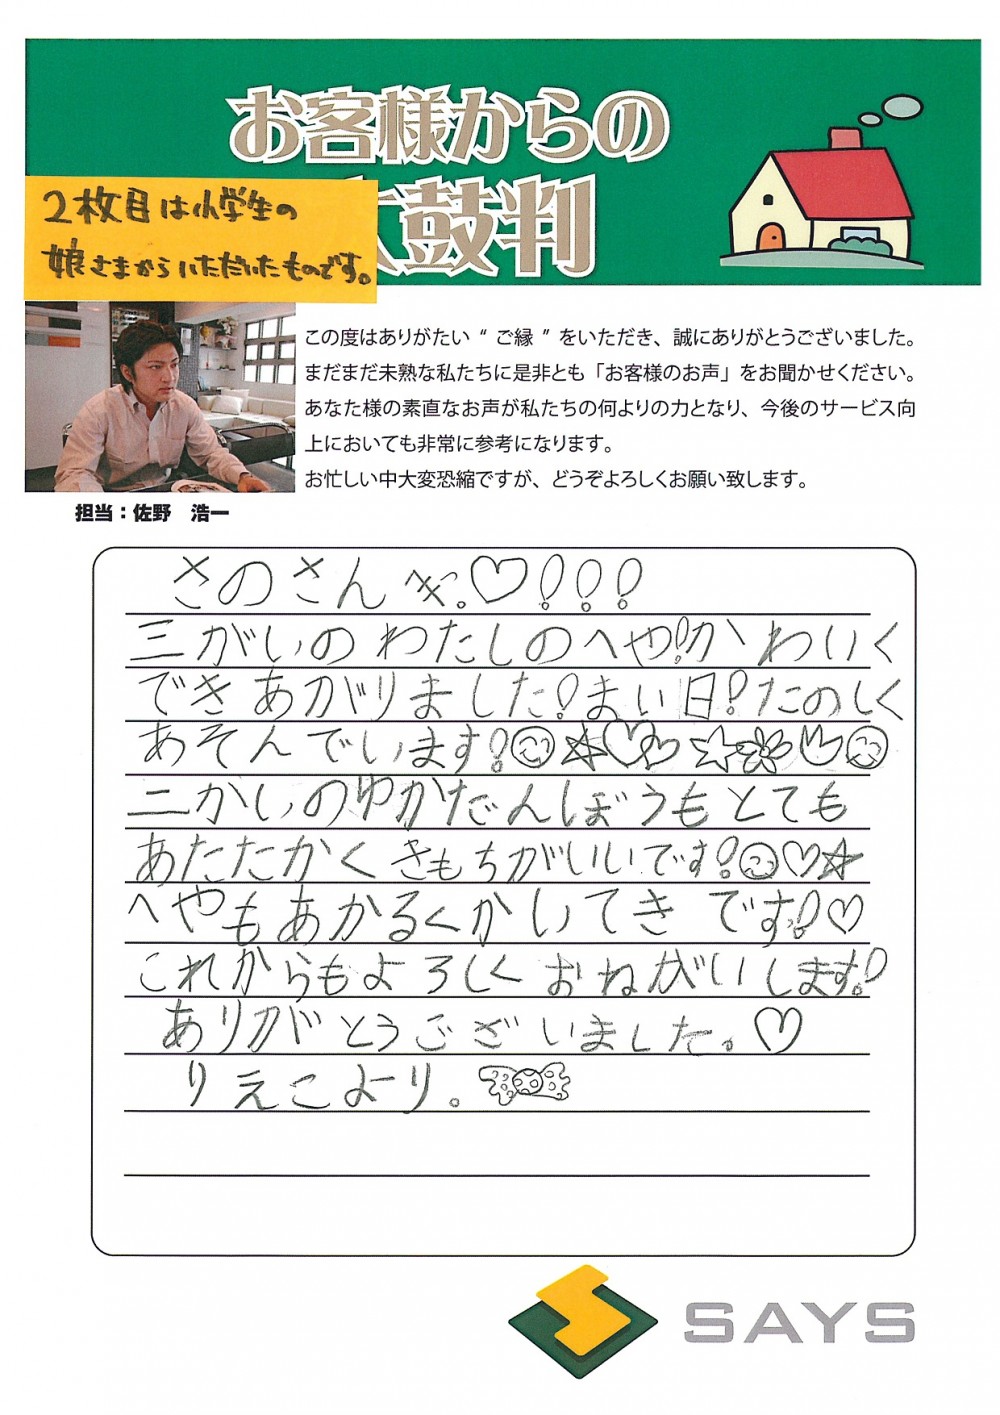 お客様からの
太鼓判
2枚目は小学生の
娘さまからいただいたものです。
この度はありがたい“ご縁”をいただき、誠にありがとうございました。
まだまだ未熟な私たちに是非とも「お客様のお声」をお聞かせください。
あなた様の素直なお声が私たちの何よりの力となり、今後のサービス向
上においても非常に参考になります。
お忙しい中大変恐縮ですが、どうぞよろしくお願い致します。
担当：佐野 浩一
さのさんへ。♡!!!
三がいのわたしのへや!かわいく
できあがりました!まい日!たのしく
あそんでいます!
二かいのゆかだんぼうもとても
あたたかくきもちがいいです!♡☆
へやもあかるくかいてきです!♡
これからもよろしくおねがいします!
ありがとうございました。♡
りえこより。
SAYS